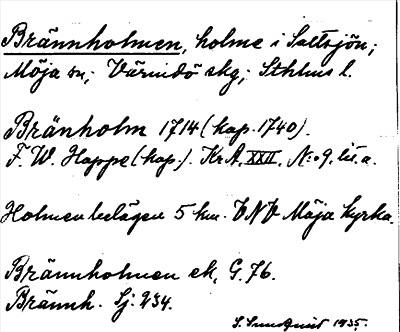 Brännholmen, holme i Saltsjön;
Möja sn; Värmdö skg; Sthlms l.
Bränholm 1714 (kop. 1740).
F. W. Happe (kop.). Kr A. XXII. N:o 9, lit. a.
Holmen belägen 5 km. VNV Möja kyrka.
Brännholmen ek, G. 76.
Brännh. Sj. 234.
S. Sundqvist 1935.